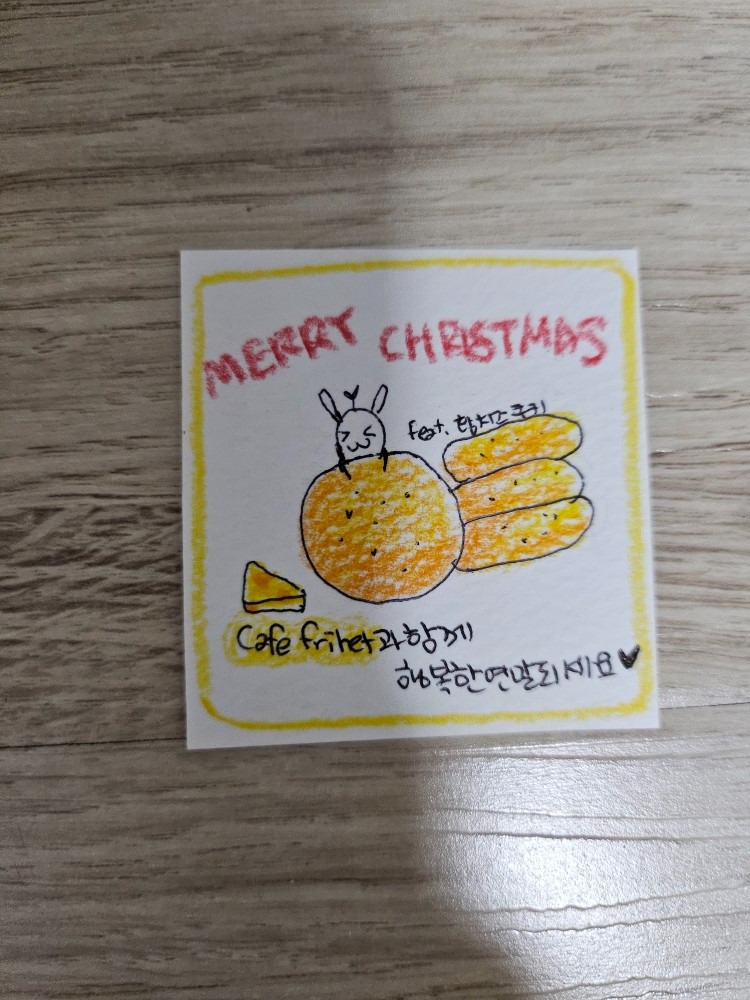 MERRY CHRISTMAS
feat. 황치즈쿠키
Cafe frihet과 함께
행복한 연말 되세요♥